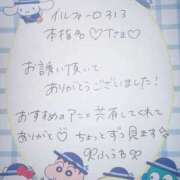 イルフォーロ313
本指名♡でさぁ♡
お誘い頂いて
ありがとうございました!
おすすめのアニメ共有してくれて
ありがと♡ ちょっとずつ見ます